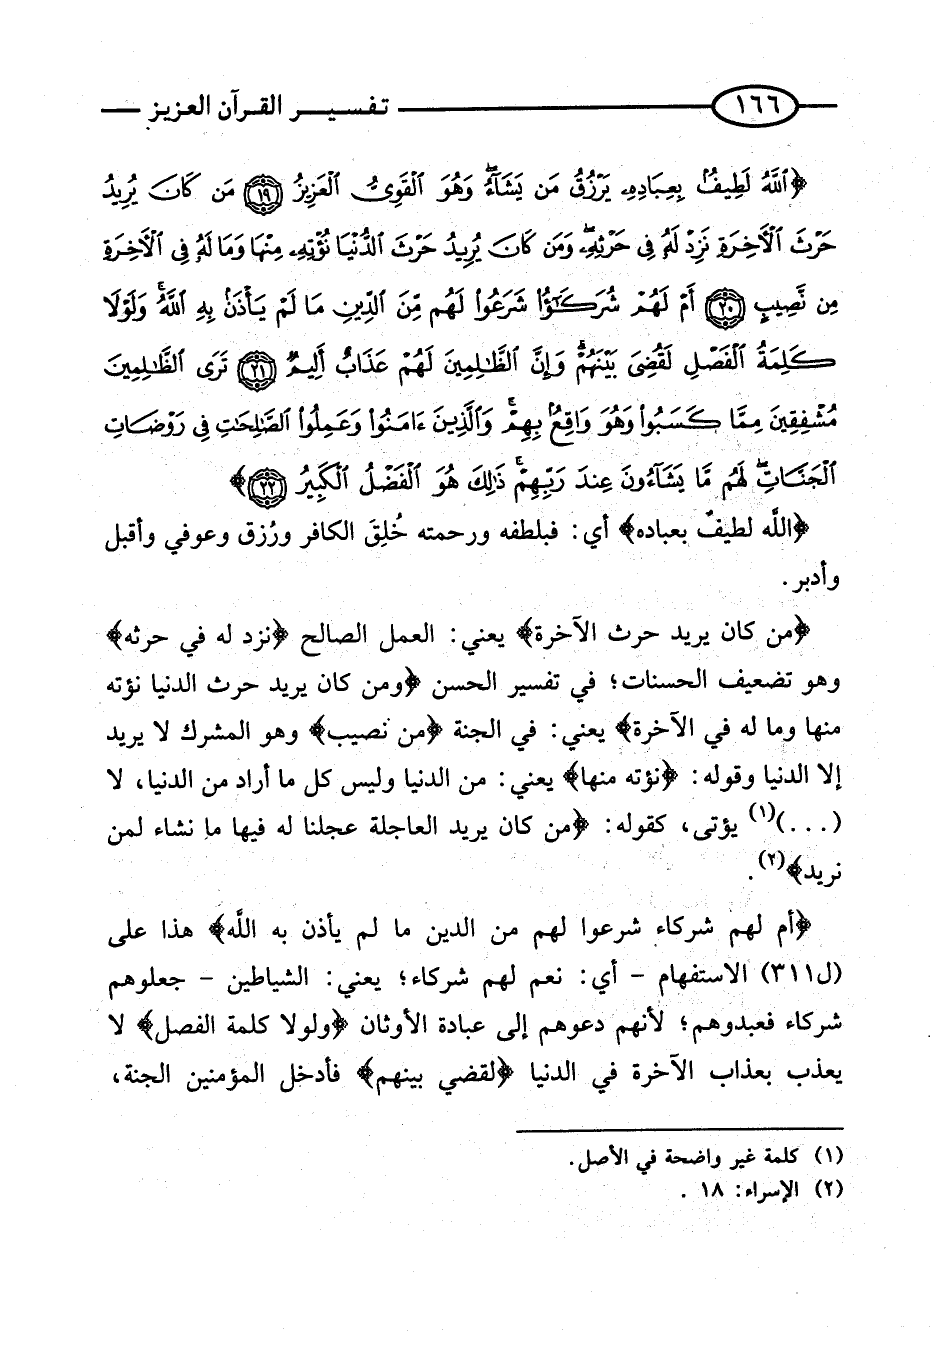 ١٦٦ تفسير القرآن العزيز
﴿ٱللَّهُ لَطِيفُۢ بِعِبَادِهِۦ يَرْزُقُ مَن يَشَآءُۖ وَهُوَ ٱلْقَوِىُّ ٱلْعَزِيزُ ﴿١٩﴾ مَن كَانَ يُرِيدُ
حَرْثَ ٱلْأَخِرَةِ نَزِدْ لَهُۥ فِى حَرْثِهِۦۖ وَمَن كَانَ يُرِيدُ حَرْثَ ٱلدُّنْيَا نُؤْتِهِۦ مِنْهَا وَمَا لَهُۥ فِى ٱلْأَخِرَةِ
مِن نَّصِيبٍ ﴿٢٠﴾ أَمْ لَهُمْ شُرَكَٰٓؤُا۟ شَرَعُوا۟ لَهُم مِّنَ ٱلدِّينِ مَا لَمْ يَأْذَنۢ بِهِ ٱللَّهُۚ وَلَوْلَا
كَلِمَةُ ٱلْفَصْلِ لَقُضِىَ بَيْنَهُمْۗ وَإِنَّ ٱلظَّٰلِمِينَ لَهُمْ عَذَابٌ أَلِيمٌ ﴿٢١﴾ تَرَى ٱلظَّٰلِمِينَ
مُشْفِقِينَ مِمَّا كَسَبُوا۟ وَهُوَ وَاقِعُۢ بِهِمْۗ وَٱلَّذِينَ ءَامَنُوا۟ وَعَمِلُوا۟ ٱلصَّٰلِحَٰتِ فِى رَوْضَاتِ
ٱلْجَنَّاتِۖ لَهُم مَّا يَشَآءُونَ عِندَ رَبِّهِمْۚ ذَٰلِكَ هُوَ ٱلْفَضْلُ ٱلْكَبِيرُ ﴿٢٢﴾﴾
﴿اللَّه لطيفٌ بعباده﴾ أي: فبلطفه ورحمته خُلِقَ الكافر ورُزق وعوفي وأقبل
وأدبر.
﴿من كان يريد حرث الآخرة﴾ يعني: العمل الصالح ﴿نزد له في حرثه﴾
وهو تضعيف الحسنات؛ في تفسير الحسن ﴿ومن كان يريد حرث الدنيا نؤته
منها وما له في الآخرة﴾ يعني: في الجنة ﴿من نصيب﴾ وهو المشرك لا يريد
إلا الدنيا وقوله: ﴿نؤته منها﴾ يعني: من الدنيا وليس كل ما أراد من الدنيا، لا
(...)(١) يؤتى، كقوله: ﴿من كان يريد العاجلة عجلنا له فيها ما نشاء لمن
نريد﴾(٢).
﴿أم لهم شركاء شرعوا لهم من الدين ما لم يأذن به اللَّه﴾ هذا على
(ل٣١١) الاستفهام - أي: نعم لهم شركاء؛ يعني: الشياطين - جعلوهم
شركاء فعبدوهم؛ لأنهم دعوهم إلى عبادة الأوثان ﴿ولولا كلمة الفصل﴾ لا
يعذب بعذاب الآخرة في الدنيا ﴿لقضي بينهم﴾ فأدخل المؤمنين الجنة،
(١) كلمة غير واضحة في الأصل.
(٢) الإسراء: ١٨ .